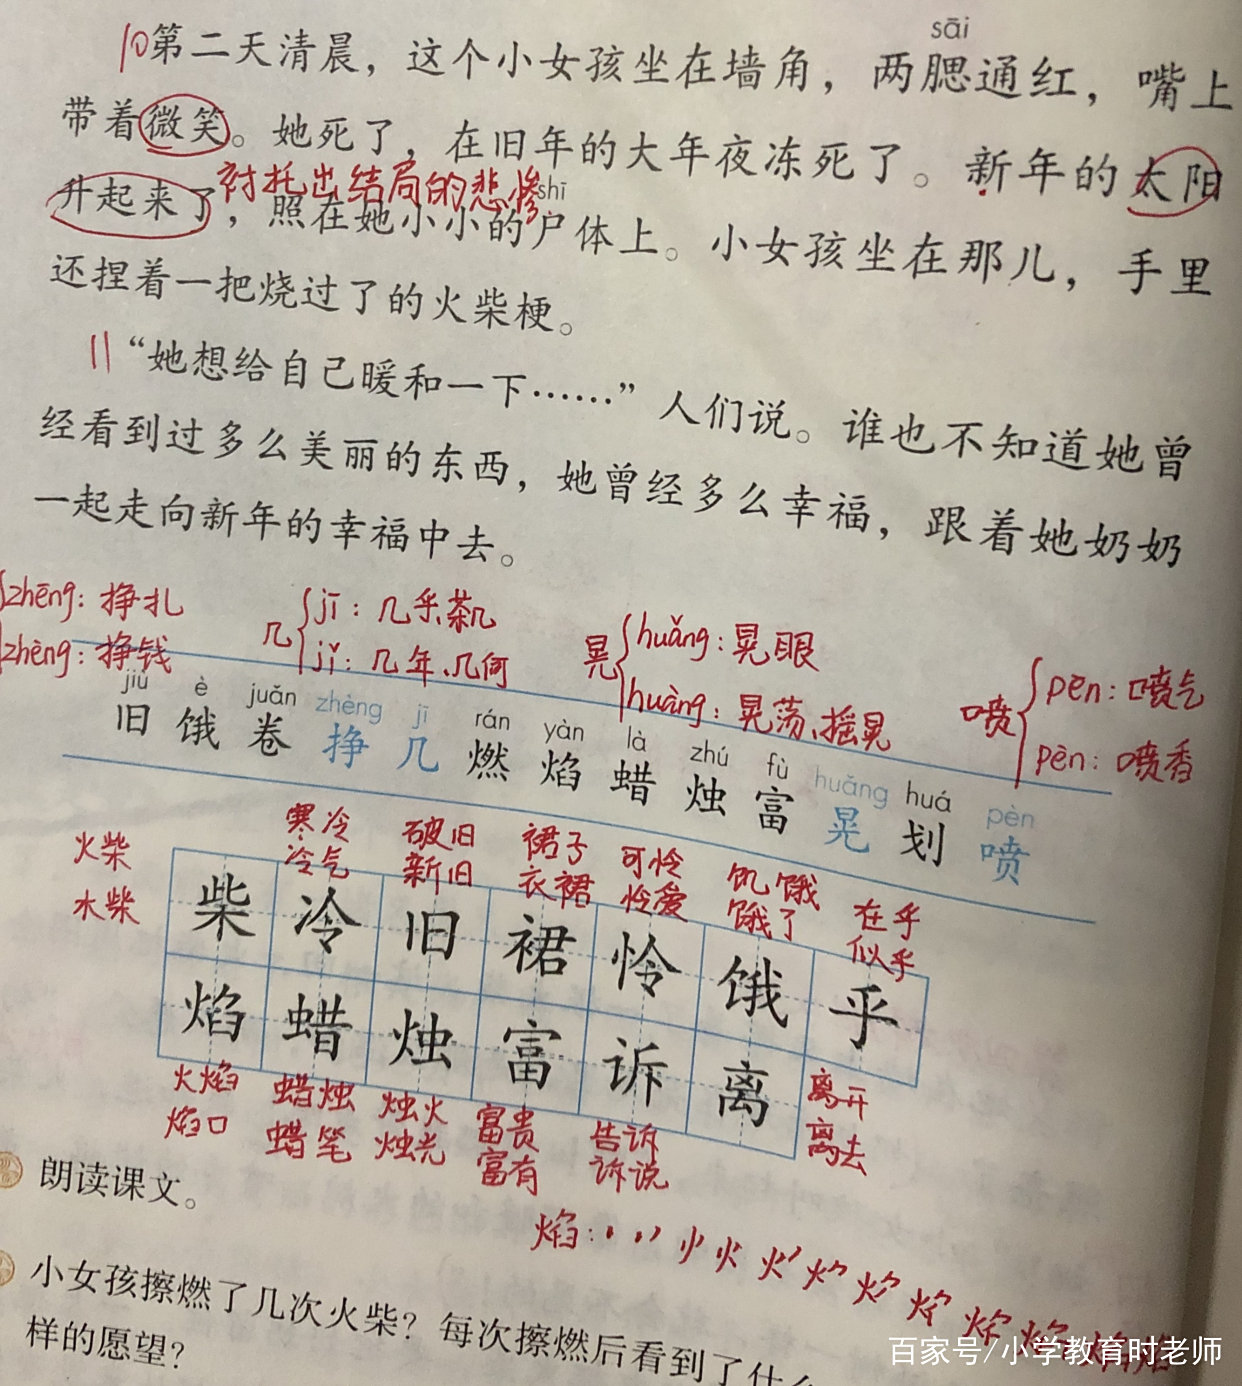 sāi
10 第二天清晨，这个小女孩坐在墙角，两腮通红，嘴上
带着微笑。她死了，在旧年的大年夜冻死了。新年的太阳
衬托出结局的悲惨
shī
升起来了，照在她小小的尸体上。小女孩坐在那儿，手里
还捏着一把烧过了的火柴梗。
11 “她想给自己暖和一下……”人们说。谁也不知道她曾
经看到过多么美丽的东西，她曾经多么幸福，跟着她奶奶
一起走向新年的幸福中去。
zhēng：挣扎
zhèng：挣钱
几
jī：几乎、茶几
jǐ：几年、几何
晃
huǎng：晃眼
huàng：晃荡、摇晃
喷
pēn：喷气
pèn：喷香
jiù è juǎn zhèng jī rán yàn là zhú fù huǎng huá pèn
旧 饿 卷 挣 几 燃 焰 蜡 烛 富 晃 划 喷
火柴 寒冷 破旧 裙子 可怜 饥饿 在乎
木柴 冷气 新旧 衣裙 怜爱 饿了 似乎
柴 冷 旧 裙 怜 饿 乎
焰 蜡 烛 富 诉 离
火焰 蜡烛 烛火 富贵 告诉 离开
焰口 蜡笔 烛光 富有 诉说 离去
朗读课文。
焰：
小女孩擦燃了几次火柴？每次擦燃后看到了什么
样的愿望？
百家号/小学教育时老师